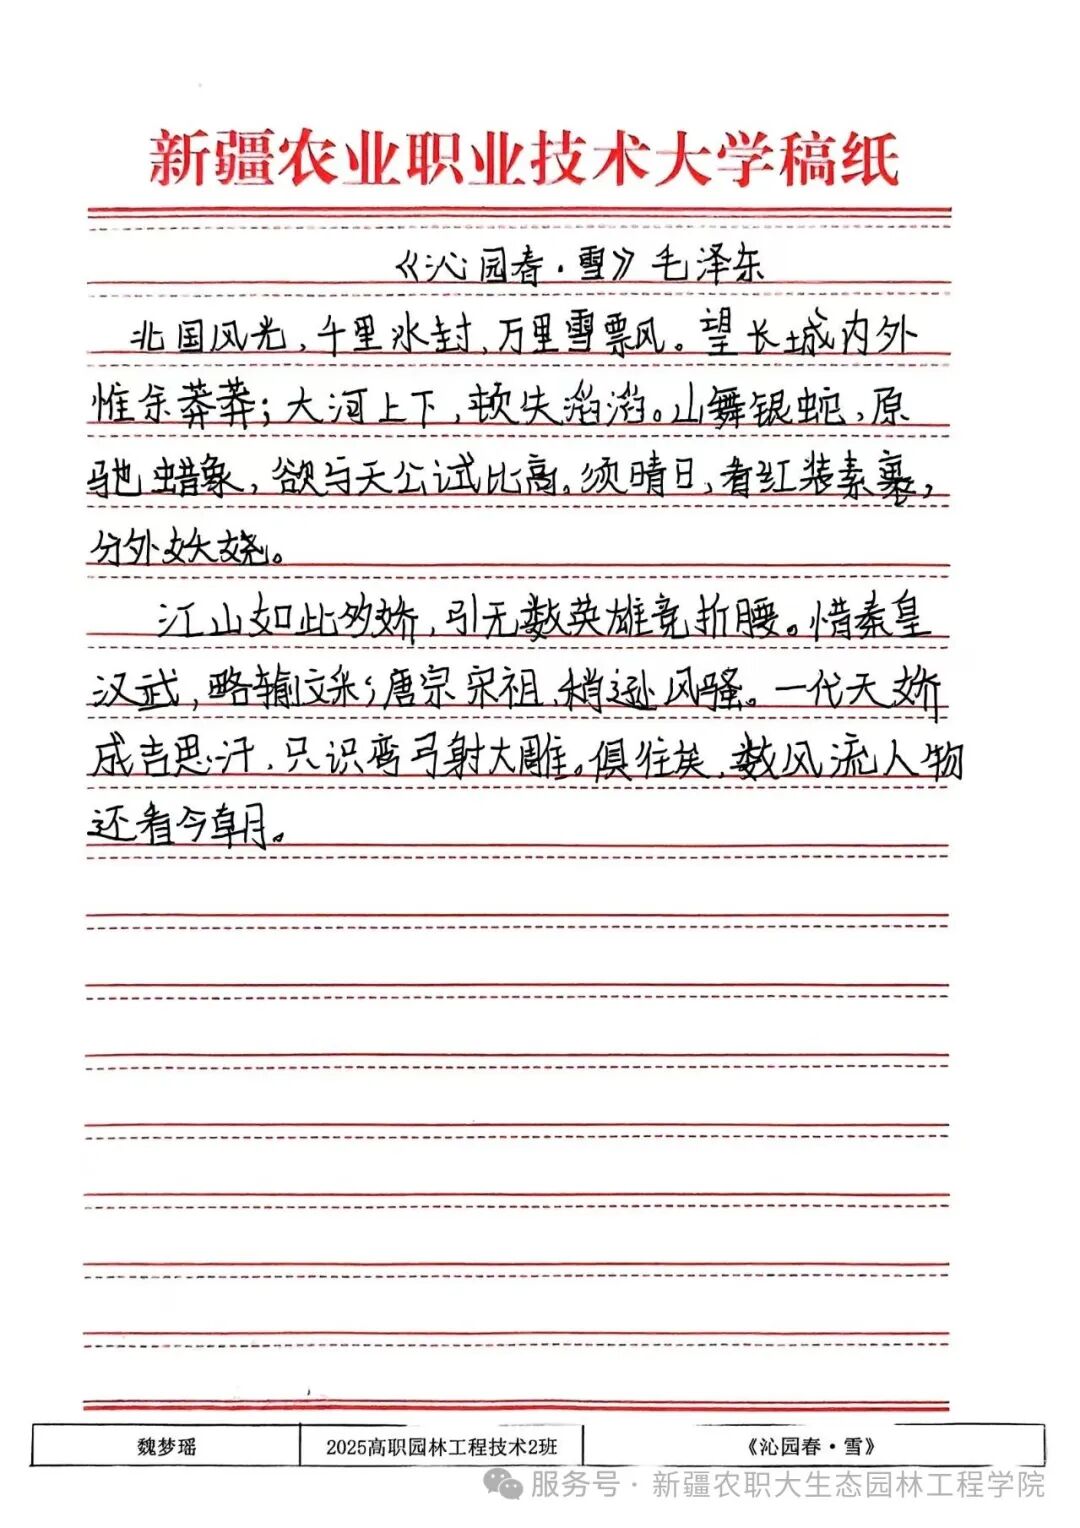 新疆农业职业技术大学稿纸
《沁园春·雪》毛泽东
北国风光，千里冰封，万里雪票风。望长城内外
惟余莽莽；大河上下，顿失滔滔。山舞银蛇，原
驰蜡象，欲与天公试比高。须晴日，看红装素裹，
分外妖娆。
江山如此多娇，引无数英雄竞折腰。惜秦皇
汉武，略输文采；唐宗宋祖，稍逊风骚。一代天娇
成吉思汗，只识弯弓射大雕。俱往矣，数风流人物
还看今朝。
魏梦瑶
2025高职园林工程技术2班
《沁园春·雪》
服务号·新疆农职大生态园林工程学院